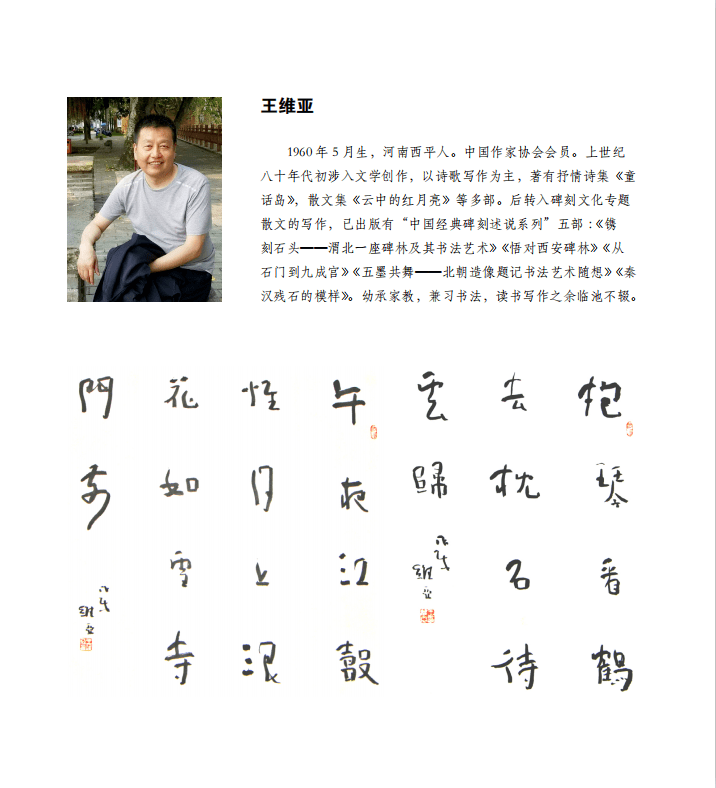 王维亚
1960 年 5 月生，河南西平人。中国作家协会会员。上世纪
八十年代初涉入文学创作，以诗歌写作为主，著有抒情诗集《童
话岛》，散文集《云中的红月亮》等多部。后转入碑刻文化专题
散文的写作，已出版有“中国经典碑刻述说系列”五部：《镌
刻石头——渭北一座碑林及其书法艺术》《悟对西安碑林》《从
石门到九成宫》《五墨共舞——北朝造像题记书法艺术随想》《秦
汉残石的模样》。幼承家教，兼习书法，读书写作之余临池不辍。
抱琴看鶴
去枕石待
雲歸
維亞
午夜江聲
推月上浪
花如雪寺
門前
維亞